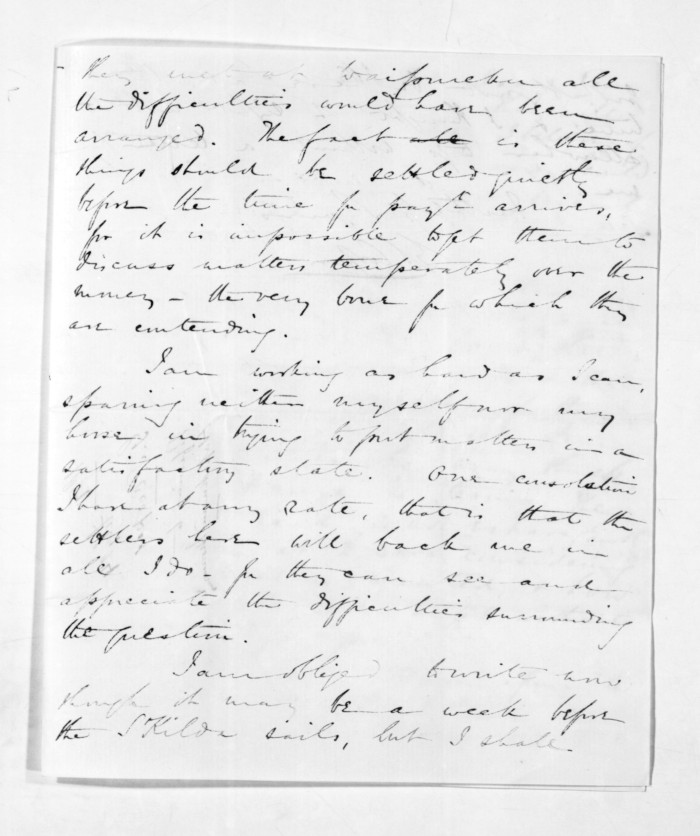 they met at Waipureku all
the difficulties would have been
arranged. The fact is these
things should be settled quietly
before the time for payt. arrives,
for it is impossible to get them to
discuss matters temperately over the
money - the very bone for which they
are contending.
I am working as hard as I can,
sparing neither myself nor my
horse, in trying to put matters in a
satisfactory state. One consolation
I have at any rate, that is that the
settlers here will back me in
all I do - for they can see and
appreciate the difficulties surrounding
the question.
I am obliged to write now
though it may be a week before
the St Kilda sails, but I shall